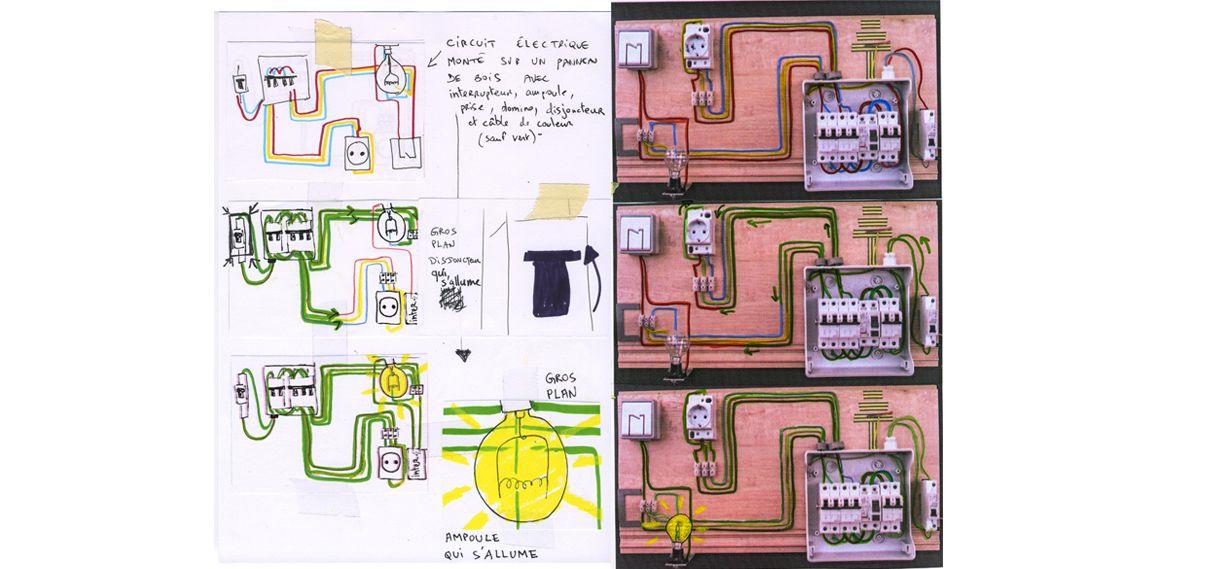 CIRCUIT ÉLECTRIQUE
MONTÉ SUR UN PANNEAU
DE BOIS AVEC
interrupteur, ampoule,
prise, domino, disjoncteur
et câble de couleur
(sauf vert)
GROS
PLAN
DISJONCTEUR
qui
s'allume
inter
GROS
PLAN
inter
AMPOULE
QUI S'ALLUME